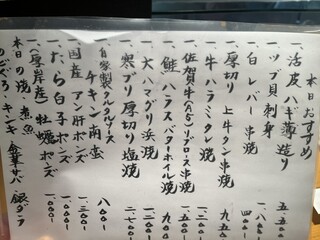 本日おすすめ
一、活皮ハギ薄造り
一、ツブ貝刺身 一.八〇〇
一、白レバー串焼 四〇〇
一、厚切り上牛タン串焼 九五〇
一、牛ハラミタレ焼
一、佐賀牛(A5)リブロース串焼 一.五〇〇
一、鮭ハラスバターホイル焼
一、大ハマグリ浜焼
一、寒ブリ厚切り塩焼
一、自家製タルタルソース
チキン南蛮 八〇〇
一、国産アン肝ポンズ 一.三〇〇
一、たら白子ポンズ 一.〇〇〇
一、(厚岸産)牡蠣ポンズ 一.〇〇〇
本日の焼、煮魚
のどぐろ、キンキ、金華サバ、銀ダラ